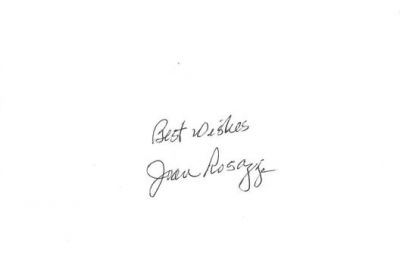 Best Wishes
Joan Rosazza